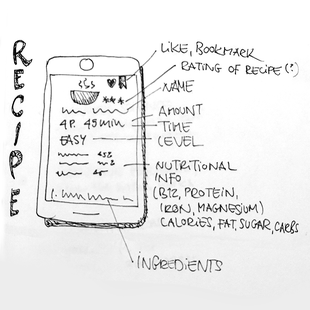 RECIPE
LIKE, BOOKMARK
RATING OF RECIPE (?)
NAME
4P. 45 min
AMOUNT
TIME
EASY
LEVEL
NUTRITIONAL
INFO
(B12, PROTEIN,
IRON, MAGNESIUM)
CALORIES, FAT, SUGAR, CARBS
1.
INGREDIENTS